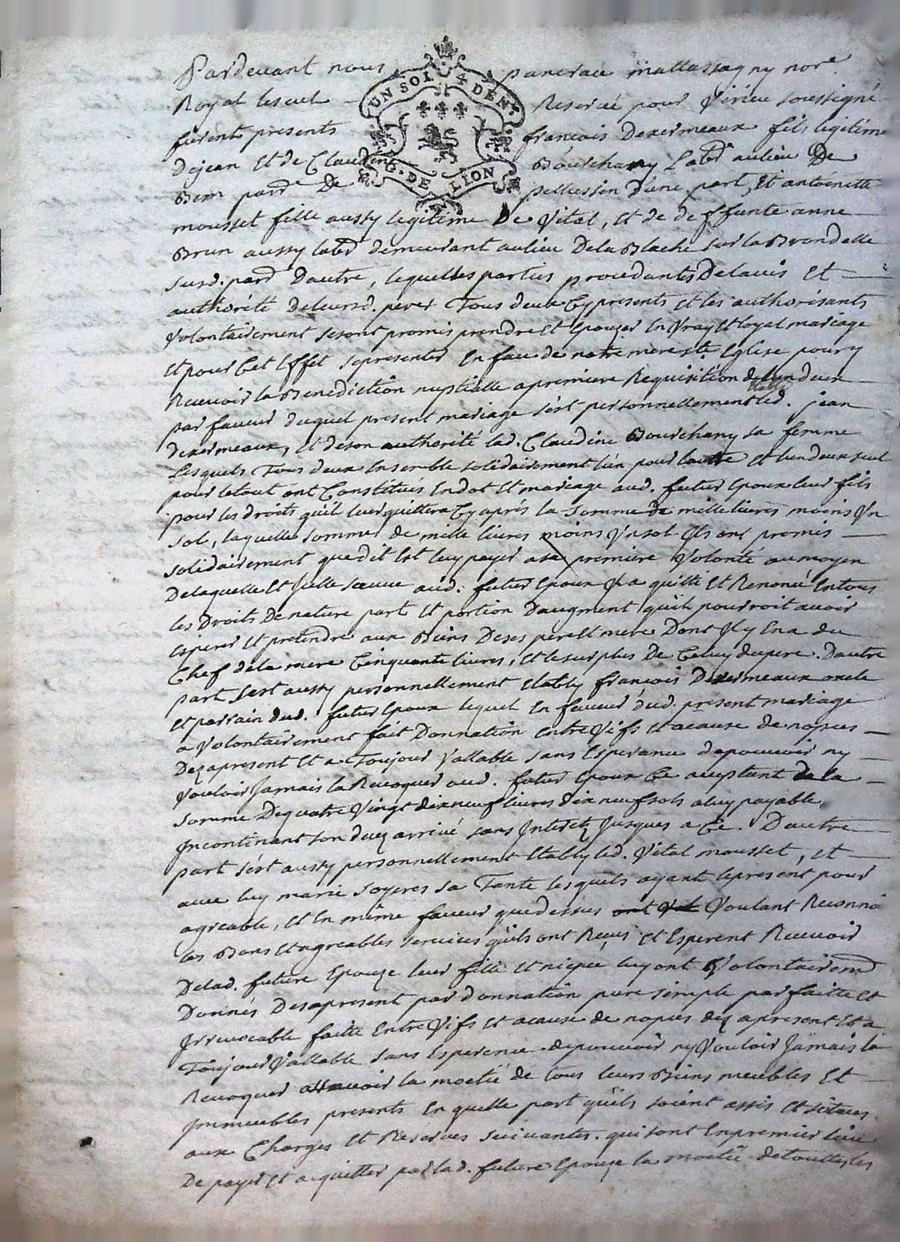 Pardevant nous pancrace mallassagny nore.
UN SOL 4 DEN.
Royal secret Reservé pour Virieu soussigné
furent presents françois Dexermeaux fils legitime
Dejean Et de Claudine Bourchany Labd. au lieu De
G. DE LION
Bem pard. De pellussin d'une part, Et antoinette
mousset fille aussy legitime De Vital, et de deffunte anne
Brun aussy labd demeurant au lieu Dela Blache sur la Brondelle
susd. pard D'autre, lequelles parties procedantes Delavis Et
authorité deleursd. peres Tous deux Cy presents Et les authorisants
Volontairement se sont promis prendre et Epouzer En Vray Et loyal mariage
Et pour Cet Effet se presenter En face de notre mere ste Eglise pour y
Recevoir la Benediction nuptielle a premiere Requisition de lun deux
par faveur duquel present mariage s'est personnellement led. jean
dexermeaux, Et de son authorité lad. Claudine Bourchany sa femme
Lesquels Tous deux Ensemble solidairement l'un pour lautre Et lun deux seul
pour letout ont Constitués En dot Et mariage aud. futur Epoux leur fils
pour les droits quil leur quittera Cy apres la somme de mille livres moins Un
sol, laquelle somme de mille livres moins Un sol Ils ont promis
solidairement que dit Est luy payer a sa premiere Volonté au moyen
Delaquelle Et jcelle led. futur Epoux Il a quitté Et Renoncé En tous
les Droits De nature part Et portion D'augment qu'il pourroit avoir
Esperer Et pretendre aux Biens De ses pere Et mere Dont Il y En a du
Chef de la mere Cinquante livres, et le surplus De Celuy du pere. D'autre
part s'est aussy personnellement Etably françois Dexermeaux oncle
Et parrain dud. futur Epoux lequel En faveur dud. present mariage
a Volontairement fait Donnation Entre Vifs Et acause de nopces
Dez apresent Et a Toujour Vallable sans Esperance de pouvoir ny
Vouloir Jamais la Revoquer aud. futur Epoux Ce acceptant de la
somme De quatre Vingt dix neuf livres dix neuf sols a luy payable
Incontinant son decez arrivé sans Interetz Jusques a Ce. D'autre
part s'est aussy personnellement Etably led. Vital mousset, Et
avec luy marie soyeres sa Tante lesquels ayant le present pour
agreable, et En même faveur que dessus Voulant Reconnoi
les Bons Et agreables services qu'ils ont Reçus Et Esperent Recevoir
Delad. future Epouze leur fille Et niepce luy ont Volontairemt
Donnés Desapresent par donnation pure simple parfaitte et
Irrevocable faitte Entre Vifs Et acause de nopces dez apresent Et a
Toujour Vallable sans Esperence de pouvoir ny Vouloir Jamais la
Revoquer assavoir la moetié de tous leurs Biens meubles Et
Immeubles presents En quelle part qu'ils soient assis Et situés
aux Charges Et Reserves suivantes. qui sont En premier lieu
De payer Et acquitter par lad. future Epouze la moetié de touttes les